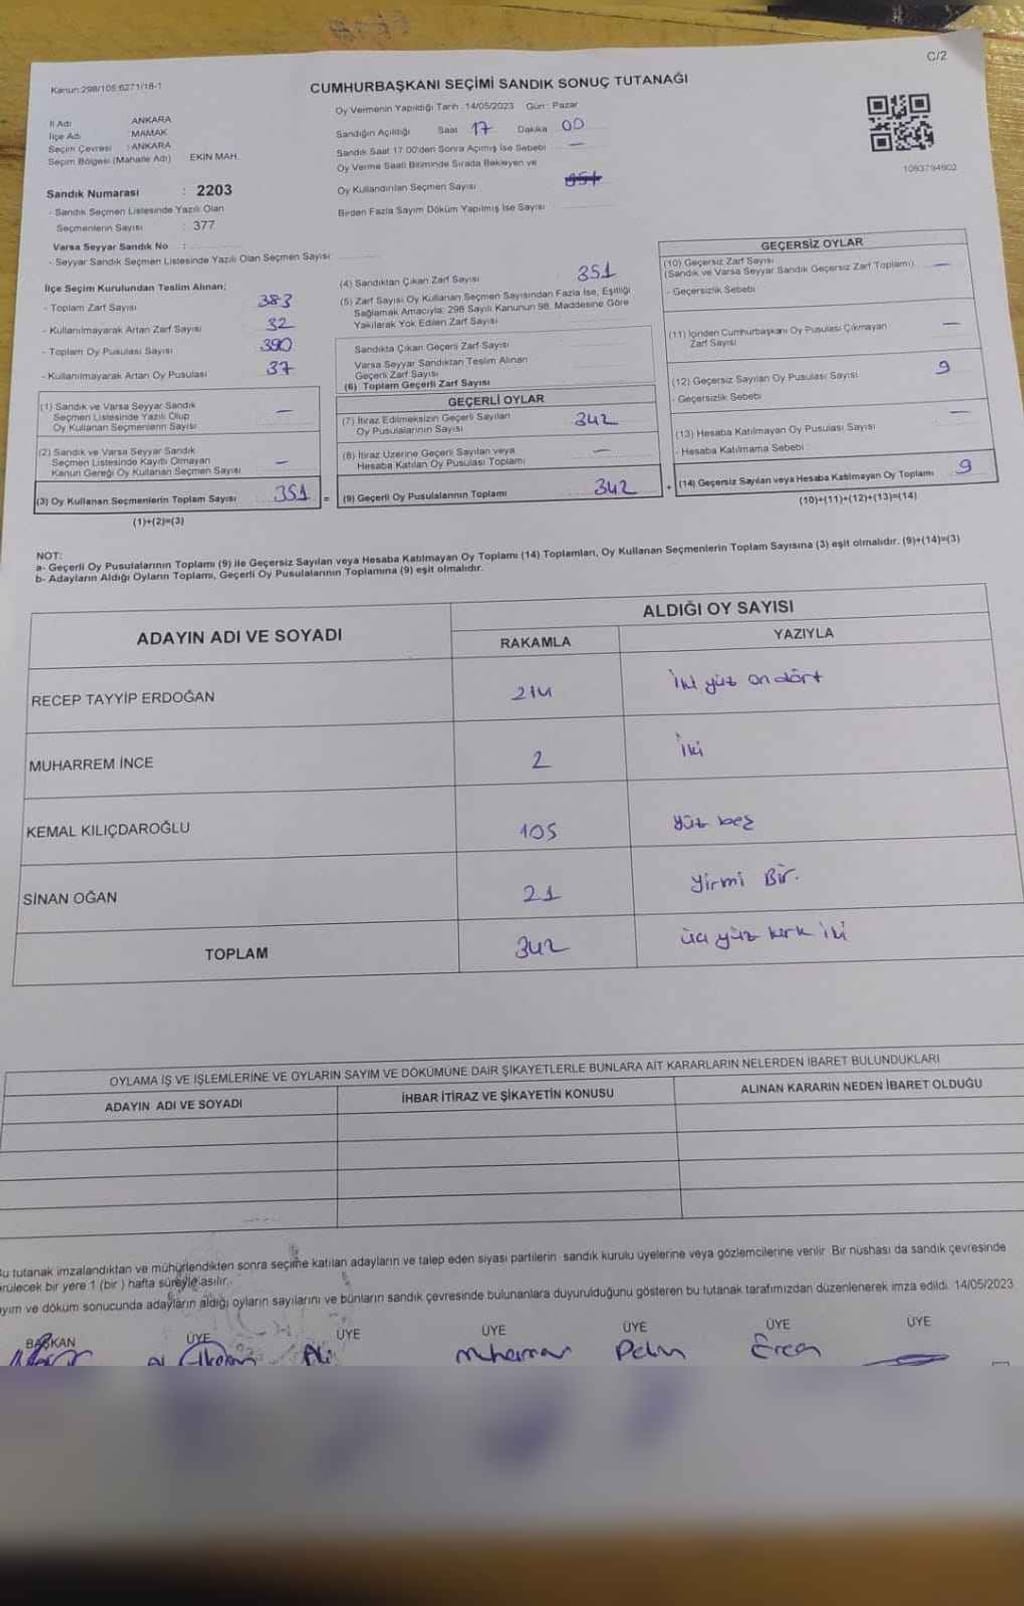 C/2
Kanun:298/105.6271/18-1
CUMHURBAŞKANI SEÇİMİ SANDIK SONUÇ TUTANAĞI
Oy Vermenin Yapıldığı Tarih : 14/05/2023 Gün : Pazar
İl Adı ANKARA
İlçe Adı MAMAK
Seçim Çevresi : ANKARA
Seçim Bölgesi (Mahalle Adı) EKİN MAH.
Sandığın Açıldığı Saat 17 Dakika 00
Sandık Saat 17.00'den Sonra Açımış İse Sebebi —
Oy Verme Saati Bitiminde Sırada Bekleyen ve
Oy Kullandırılan Seçmen Sayısı
Birden Fazla Sayım Döküm Yapılmış İse Sayısı
Sandık Numarası : 2203
- Sandık Seçmen Listesinde Yazılı Olan
Seçmenlerin Sayısı : 377
Varsa Seyyar Sandık No :
- Seyyar Sandık Seçmen Listesinde Yazılı Olan Seçmen Sayısı
İlçe Seçim Kurulundan Teslim Alınan;
- Toplam Zarf Sayısı 383
- Kullanılmayarak Artan Zarf Sayısı 32
- Toplam Oy Pusulası Sayısı 390
- Kullanılmayarak Artan Oy Pusulası 37
(1) Sandık ve Varsa Seyyar Sandık —
Seçmen Listesinde Yazılı Olup
Oy Kullanan Seçmenlerin Sayısı
(2) Sandık ve Varsa Seyyar Sandık
Seçmen Listesinde Kayıtlı Olmayan —
Kanun Gereği Oy Kullanan Seçmen Sayısı
(3) Oy Kullanan Seçmenlerin Toplam Sayısı 351 =
(1)+(2)=(3)
(4) Sandıktan Çıkan Zarf Sayısı 351
(5) Zarf Sayısı Oy Kullanan Seçmen Sayısından Fazla İse, Eşitliği
Sağlamak Amacıyla; 298 Sayılı Kanunun 98. Maddesine Göre
Yakılarak Yok Edilen Zarf Sayısı
Sandıkta Çıkan Geçerli Zarf Sayısı
Varsa Seyyar Sandıktan Teslim Alınan
Geçerli Zarf Sayısı
(6) Toplam Geçerli Zarf Sayısı
GEÇERLİ OYLAR
(7) İtiraz Edilmeksizin Geçerli Sayılan 342
Oy Pusulalarının Sayısı
(8) İtiraz Üzerine Geçerli Sayılan veya —
Hesaba Katılan Oy Pusulası Toplamı
(9) Geçerli Oy Pusulalarının Toplamı 342 +
1093794802
GEÇERSİZ OYLAR
(10) Geçersiz Zarf Sayısı
(Sandık ve Varsa Seyyar Sandık Geçersiz Zarf Toplamı) —
- Geçersizlik Sebebi
(11) İçinden Cumhurbaşkanı Oy Pusulası Çıkmayan —
Zarf Sayısı
(12) Geçersiz Sayılan Oy Pusulası Sayısı 9
- Geçersizlik Sebebi
(13) Hesaba Katılmayan Oy Pusulası Sayısı —
- Hesaba Katılmama Sebebi
(14) Geçersiz Sayılan veya Hesaba Katılmayan Oy Toplamı 9
(10)+(11)+(12)+(13)=(14)
NOT:
a- Geçerli Oy Pusulalarının Toplamı (9) ile Geçersiz Sayılan veya Hesaba Katılmayan Oy Toplamı (14) Toplamları, Oy Kullanan Seçmenlerin Toplam Sayısına (3) eşit olmalıdır. (9)+(14)=(3)
b- Adayların Aldığı Oyların Toplamı, Geçerli Oy Pusulalarının Toplamına (9) eşit olmalıdır.
ADAYIN ADI VE SOYADI
ALDIĞI OY SAYISI
RAKAMLA YAZIYLA
RECEP TAYYİP ERDOĞAN 214 İki yüz on dört
MUHARREM İNCE 2 İki
KEMAL KILIÇDAROĞLU 105 yüz beş
SİNAN OĞAN 21 Yirmi Bir.
TOPLAM 342 üç yüz kırk iki
OYLAMA İŞ VE İŞLEMLERİNE VE OYLARIN SAYIM VE DÖKÜMÜNE DAİR ŞİKAYETLERLE BUNLARA AİT KARARLARIN NELERDEN İBARET BULUNDUKLARI
ADAYIN ADI VE SOYADI İHBAR İTİRAZ VE ŞİKAYETİN KONUSU ALINAN KARARIN NEDEN İBARET OLDUĞU
Bu tutanak imzalandıktan ve mühürlendikten sonra seçime katılan adayların ve talep eden siyasi partilerin sandık kurulu üyelerine veya gözlemcilerine verilir. Bir nüshası da sandık çevresinde
rülecek bir yere 1 (bir) hafta süreyle asılır.
ayım ve döküm sonucunda adayların aldığı oyların sayılarını ve bunların sandık çevresinde bulunanlara duyurulduğunu gösteren bu tutanak tarafımızdan düzenlenerek imza edildi. 14/05/2023
BAŞKAN ÜYE ÜYE ÜYE ÜYE ÜYE ÜYE
Ali Pelin Ercan